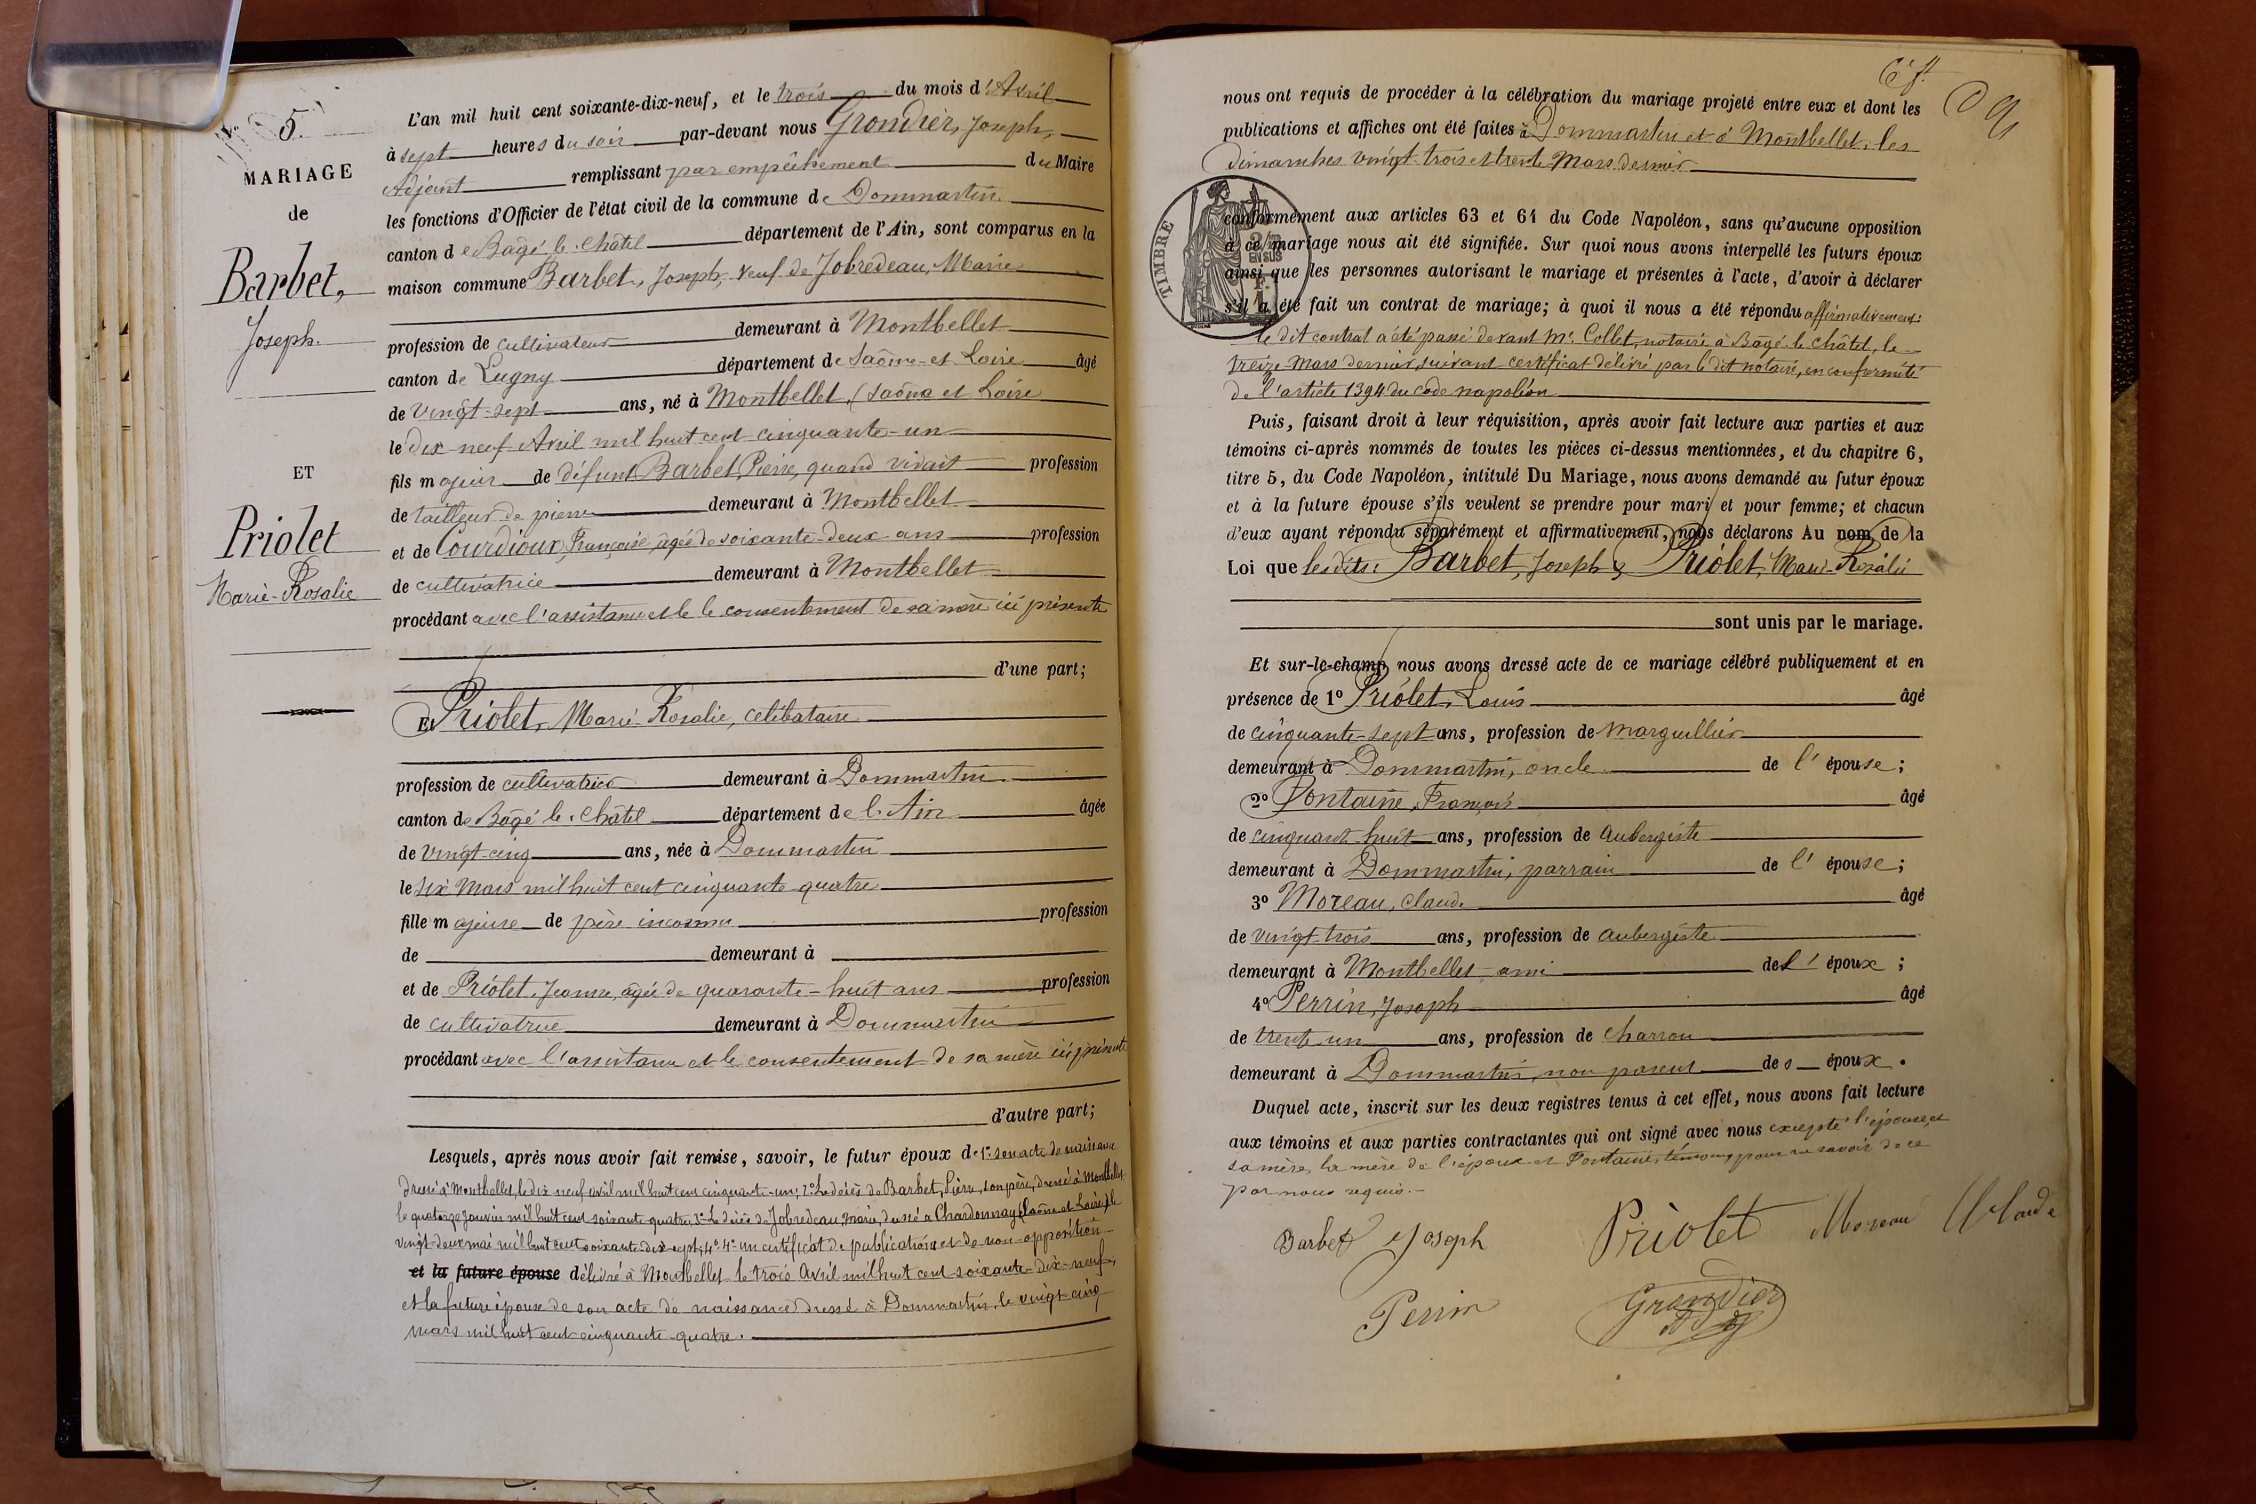 5.
MARIAGE
de
Barbet,
Joseph.
ET
Priolet
Marie-Rosalie
L'an mil huit cent soixante-dix-neuf, et le trois du mois d'Avril
à sept heures du soir par-devant nous Grondier, Joseph,
Adjoint remplissant par empêchement du Maire
les fonctions d'Officier de l'état civil de la commune de Dommartin
canton de Bagé-le-Châtel département de l'Ain, sont comparus en la
maison commune Barbet, Joseph, veuf de Jobredeau, Marie
profession de cultivateur demeurant à Montbellet
canton de Lugny département de Saône-et-Loire âgé
de vingt-sept ans, né à Montbellet (Saône et Loire
le dix neuf Avril mil huit cent cinquante-un
fils majeur de défunt Barbet, Pierre, quand vivait profession
de tailleur de pierre demeurant à Montbellet
et de Courdioux, Françoise, âgée de soixante-deux ans profession
de cultivatrice demeurant à Montbellet
procédant avec l'assistance et le consentement de sa mère ici présente
d'une part;
Et Priolet, Marie-Rosalie, célibataire
profession de cultivatrice demeurant à Dommartin
canton de Bâgé-le-Châtel département de l'Ain âgée
de vingt-cinq ans, née à Dommartin
le six Mars mil huit cent cinquante-quatre
fille majeure de père inconnu profession
de demeurant à
et de Priolet, Jeanne, âgée de quarante-huit ans profession
de cultivatrice demeurant à Dommartin
procédant avec l'assistance et le consentement de sa mère ici présente
d'autre part;
Lesquels, après nous avoir fait remise, savoir, le futur époux de 1° son acte de naissance
dressé à Montbellet, le dix neuf avril mil huit cent cinquante-un; 2° Le décès de Barbet, Pierre, son père, dressé à Montbellet
le quatorze janvier mil huit cent soixante quatre, 3° Le décès de Jobredeau, Marie, dressé à Chardonnay (Saône et Loire) le
vingt-deux mai mil huit cent soixante dix-sept; 4° 4° un certificat de publications et de non-opposition
et la future épouse délivré à Montbellet le trois Avril mil huit cent soixante-dix-neuf,
et la future épouse de son acte de naissance dressé à Dommartin, le vingt-cinq
mars mil huit cent cinquante-quatre.
6e f.
nous ont requis de procéder à la célébration du mariage projeté entre eux et dont les
publications et affiches ont été faites à Dommartin et à Montbellet, les
dimanches vingt-trois et trente Mars dernier
TIMBRE
2/10
EN SUS
conformément aux articles 63 et 64 du Code Napoléon, sans qu'aucune opposition
à ce mariage nous ait été signifiée. Sur quoi nous avons interpellé les futurs époux
ainsi que les personnes autorisant le mariage et présentes à l'acte, d'avoir à déclarer
s'il a été fait un contrat de mariage; à quoi il nous a été répondu affirmativement:
le dit contrat a été passé devant Me Collet, notaire à Bagé-le-Châtel, le
treize Mars dernier, suivant certificat délivré par le dit notaire, en conformité
de l'article 1394 du Code napoléon
Puis, faisant droit à leur réquisition, après avoir fait lecture aux parties et aux
témoins ci-après nommés de toutes les pièces ci-dessus mentionnées, et du chapitre 6,
titre 5, du Code Napoléon, intitulé Du Mariage, nous avons demandé au futur époux
et à la future épouse s'ils veulent se prendre pour mari et pour femme; et chacun
d'eux ayant répondu séparément et affirmativement, nous déclarons Au nom de la
Loi que les dits: Barbet, Joseph & Priolet, Marie-Rosalie
sont unis par le mariage.
Et sur-le-champ nous avons dressé acte de ce mariage célébré publiquement et en
présence de 1° Priolet, Louis âgé
de cinquante-sept ans, profession de marguillier
demeurant à Dommartin, oncle de l'épouse;
2° Fontaine, François âgé
de cinquante-huit ans, profession de aubergiste
demeurant à Dommartin, parrain de l'épouse;
3° Moreau, Claude âgé
de vingt-trois ans, profession de aubergiste
demeurant à Montbellet ami de l'époux;
4° Perrin, Joseph âgé
de trente-un ans, profession de charron
demeurant à Dommartin, non parent des époux.
Duquel acte, inscrit sur les deux registres tenus à cet effet, nous avons fait lecture
aux témoins et aux parties contractantes qui ont signé avec nous excepté l'épouse, et
sa mère, la mère de l'époux et Fontaine, témoin, pour ne savoir de ce
par nous requis.
Barbet Joseph Priolet Moreau Claude
Perrin Grondier